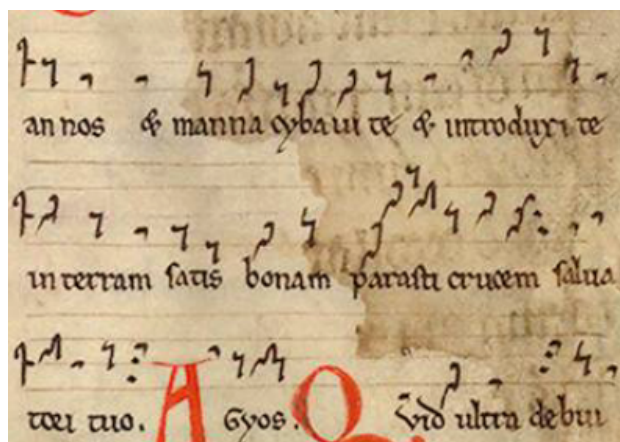 annos & manna cybaui te & introduxi te
in terram satis bonam parasti crucem salua
tori tuo. Agyos. Quid ultra debui